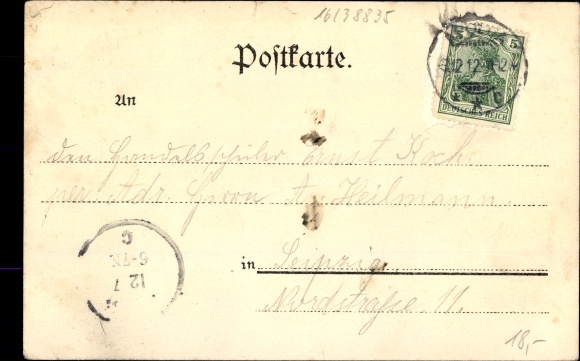 16138835
Postkarte.
5
DEUTSCHES REICH
An
den Handelsschüler Ernst Koch
per Adr. Herrn A. Heilmann.
in Leipzig
Nordstraße 11.
6-7N.
12 7
18,-